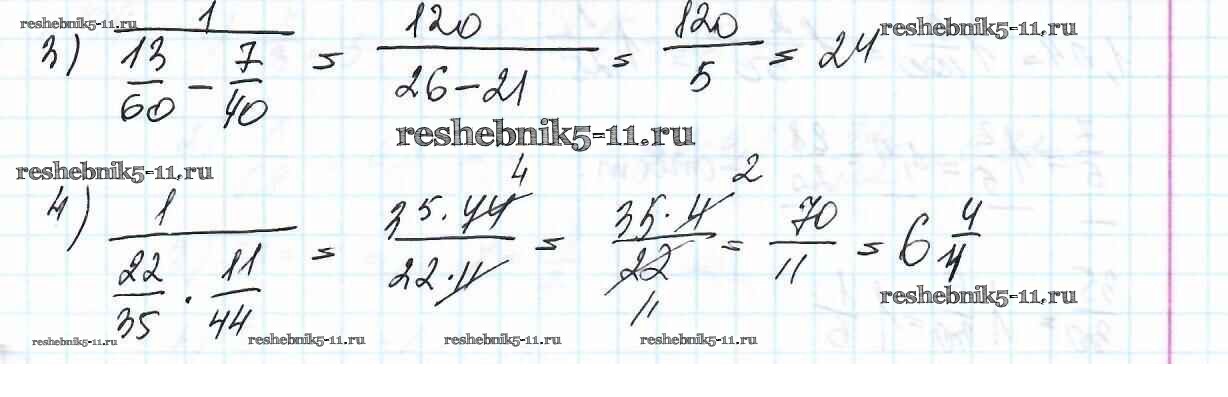 reshebnik5-11.ru
3) 1/(13/60 - 7/40) = 120/(26-21) = 120/5 = 24
reshebnik5-11.ru
reshebnik5-11.ru
reshebnik5-11.ru
4) 1/(22/35 · 11/44) = 35·44/22·11 = 35·4/22 = 70/11 = 6 4/11
4
2
11
reshebnik5-11.ru
reshebnik5-11.ru
reshebnik5-11.ru
reshebnik5-11.ru
reshebnik5-11.ru